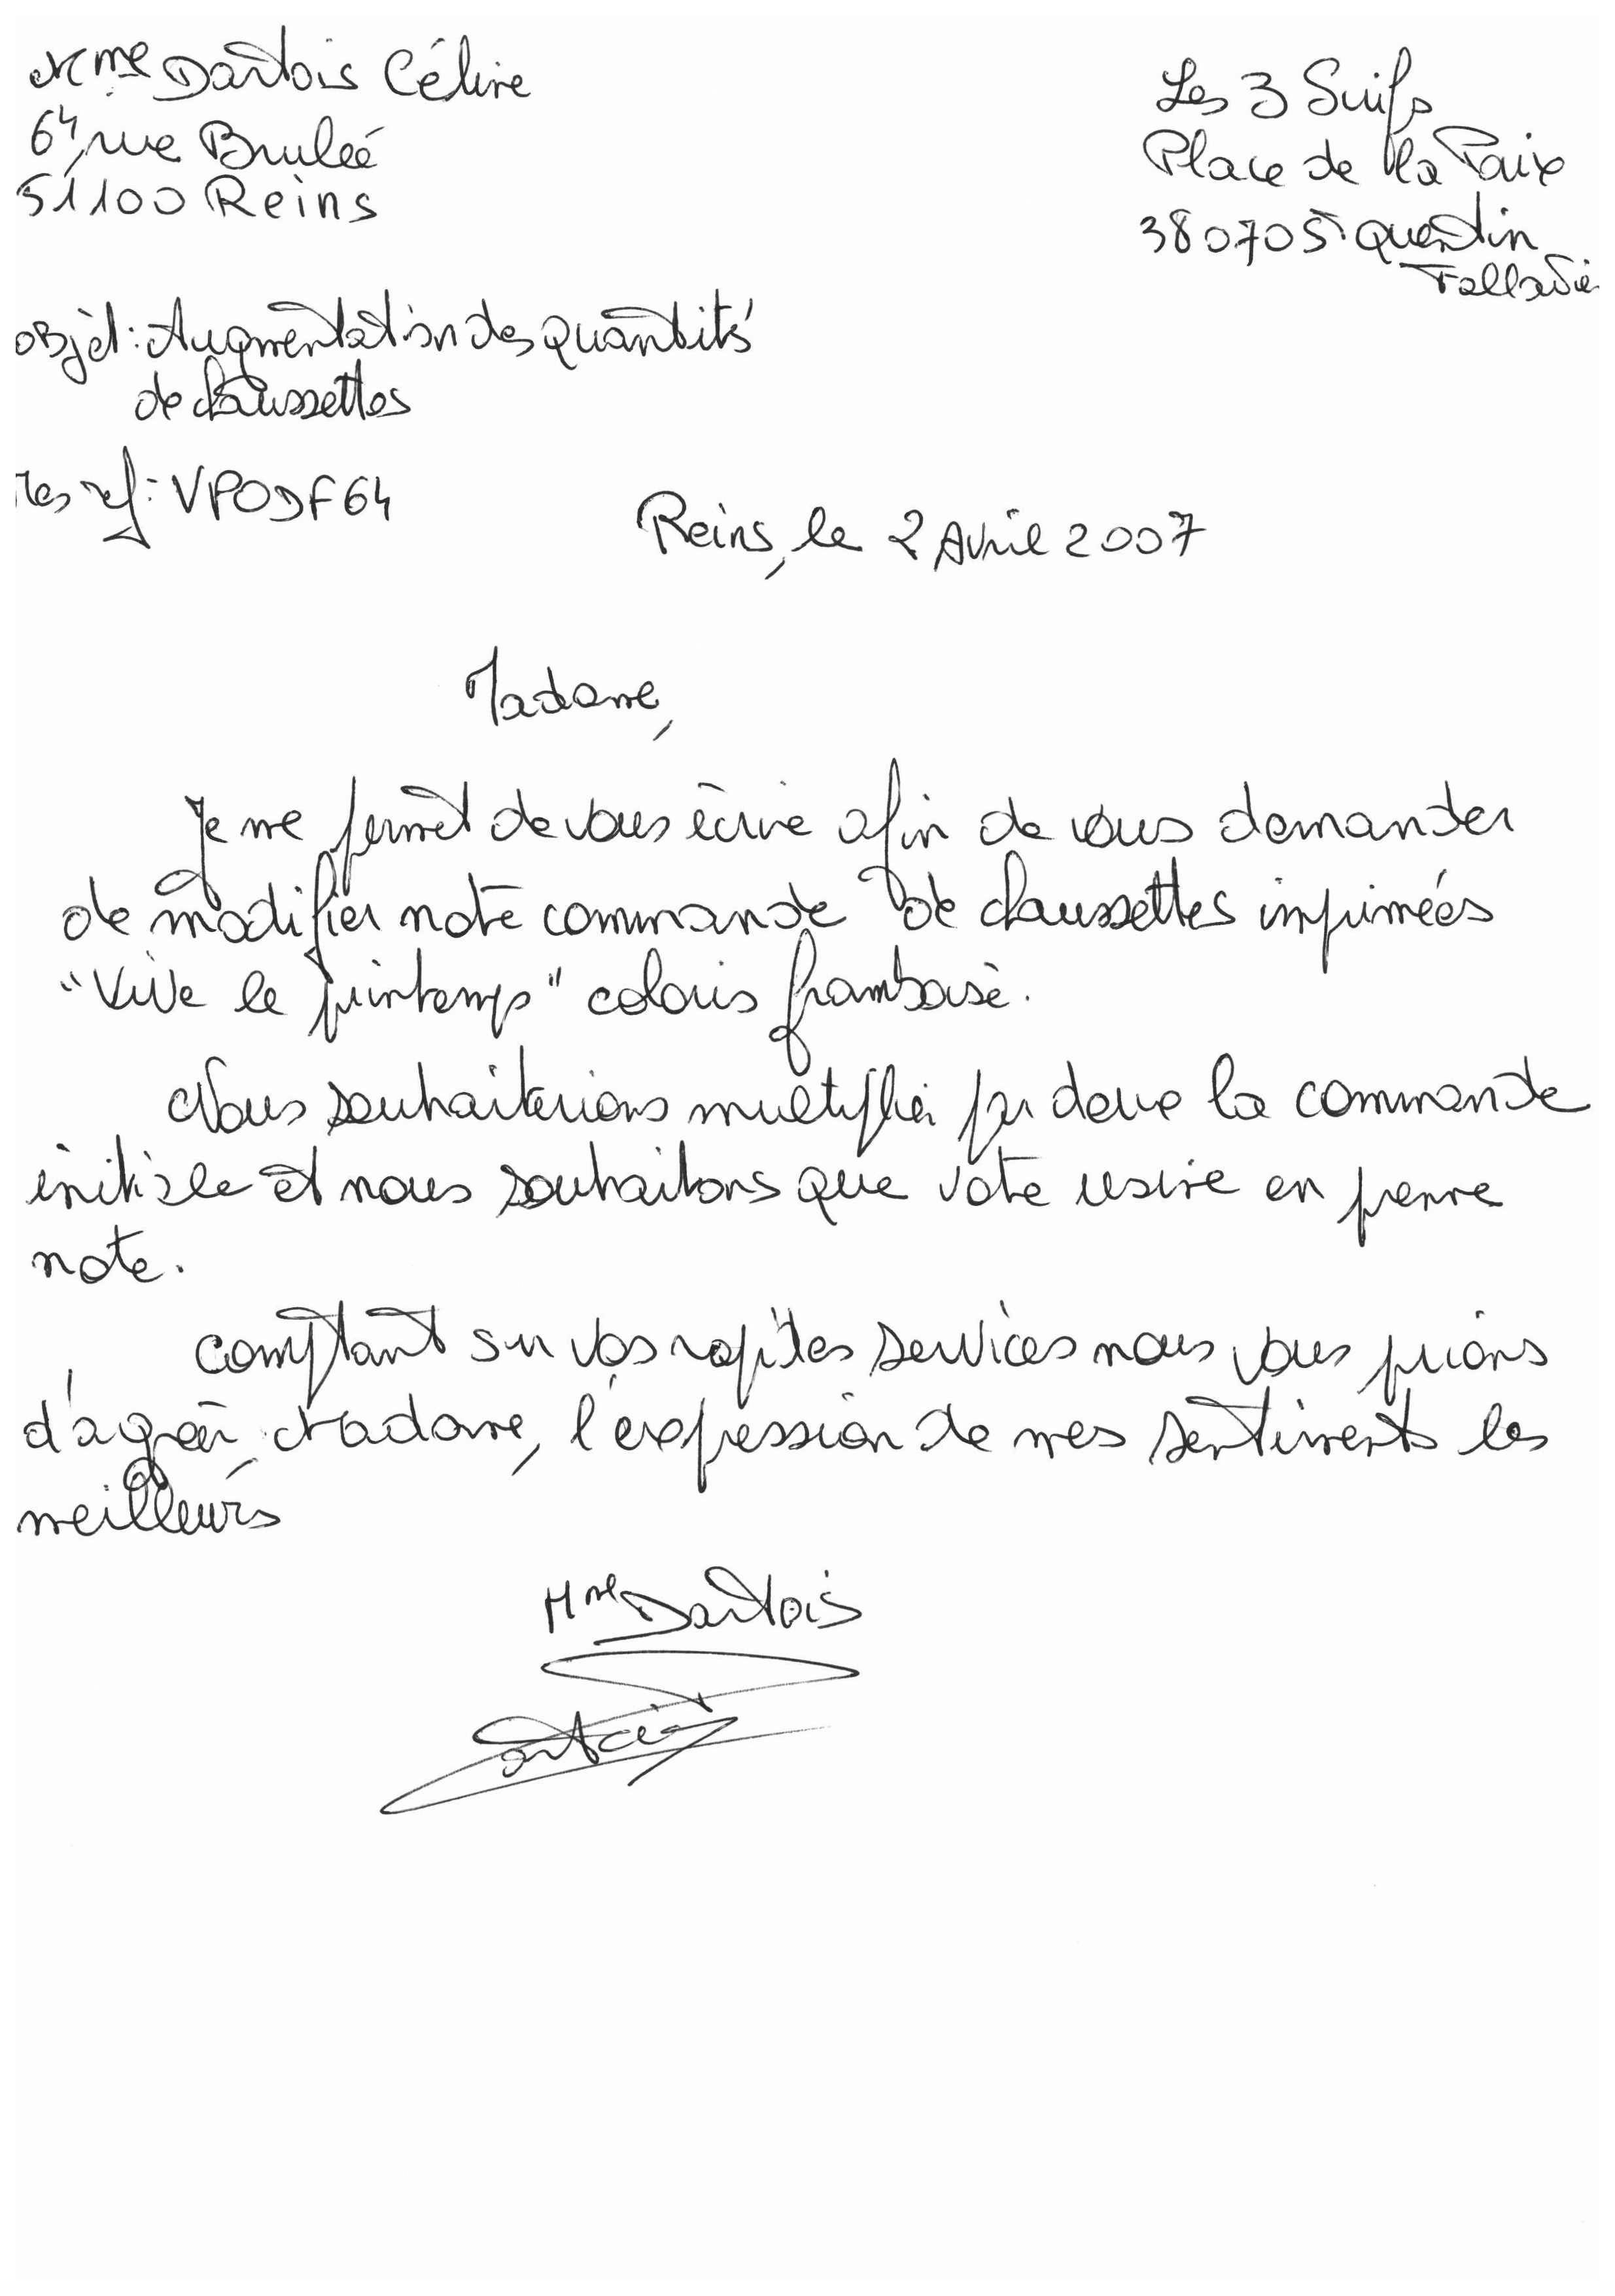 Mme Dartois Céline
64, rue Bruleé
51100 Reins
Les 3 Suifs
Place de la Paix
38070 St Quentin
Fallavie
objet : Augmentation des quantités
de chaussettes
Mes ref : VPODF64
Reins, le 2 Avril 2007
Madame,
Je me permet de vous écrire afin de vous demander
de modifier notre commande de chaussettes imprimées
"Vive le printemps" coloris framboise.
Nous souhaiterions multiplier par deux la commande
initiale et nous souhaitons que votre usine en prenne
note.
Comptant sur vos rapides services nous vous prions
d'agréer, Madame, l'expression de mes sentiments les
meilleurs
Mme Dartois